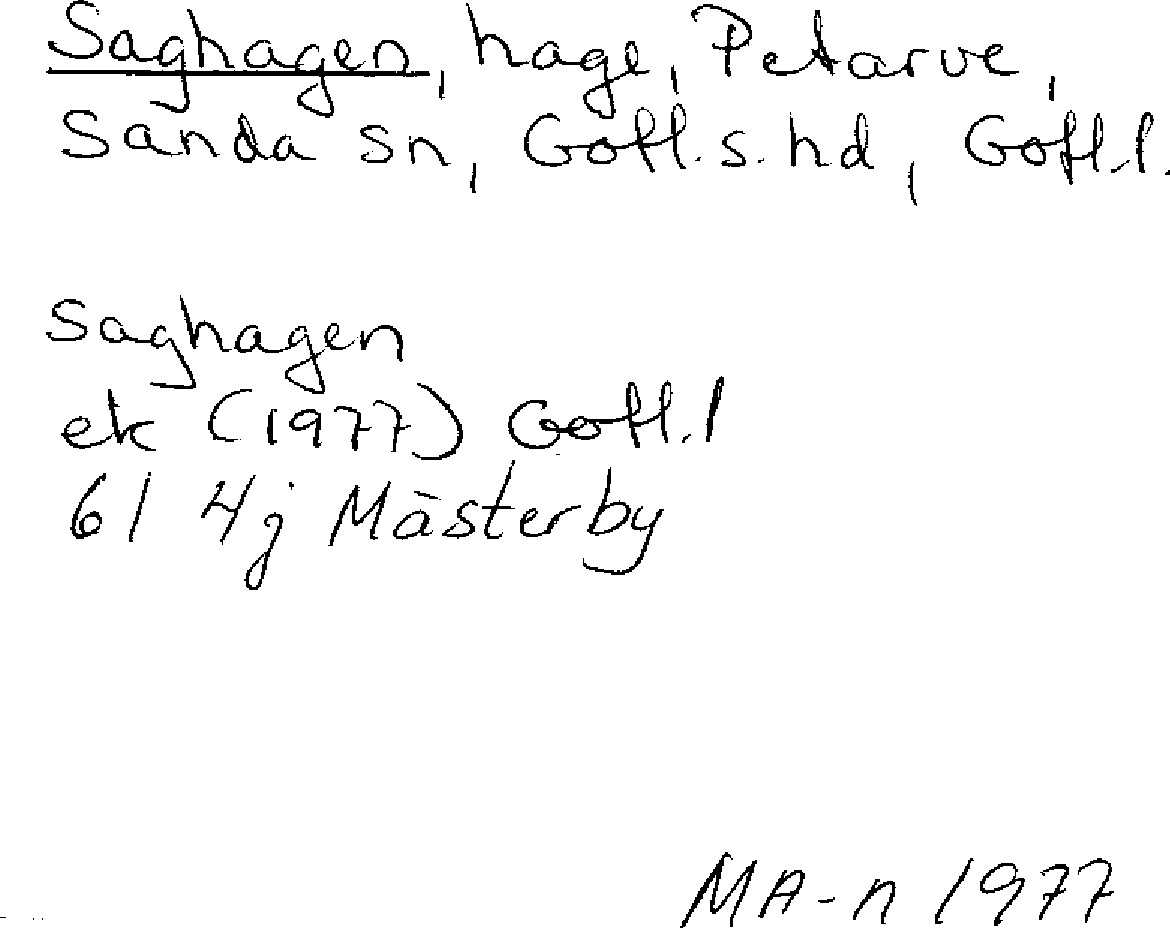 Saghagen, hage, Petarve,
Sanda sn, Gotl.s.hd, Gotl.l.
Saghagen
ek (1977) Gotl.l
6I 4j Mästerby
MA-n 1977